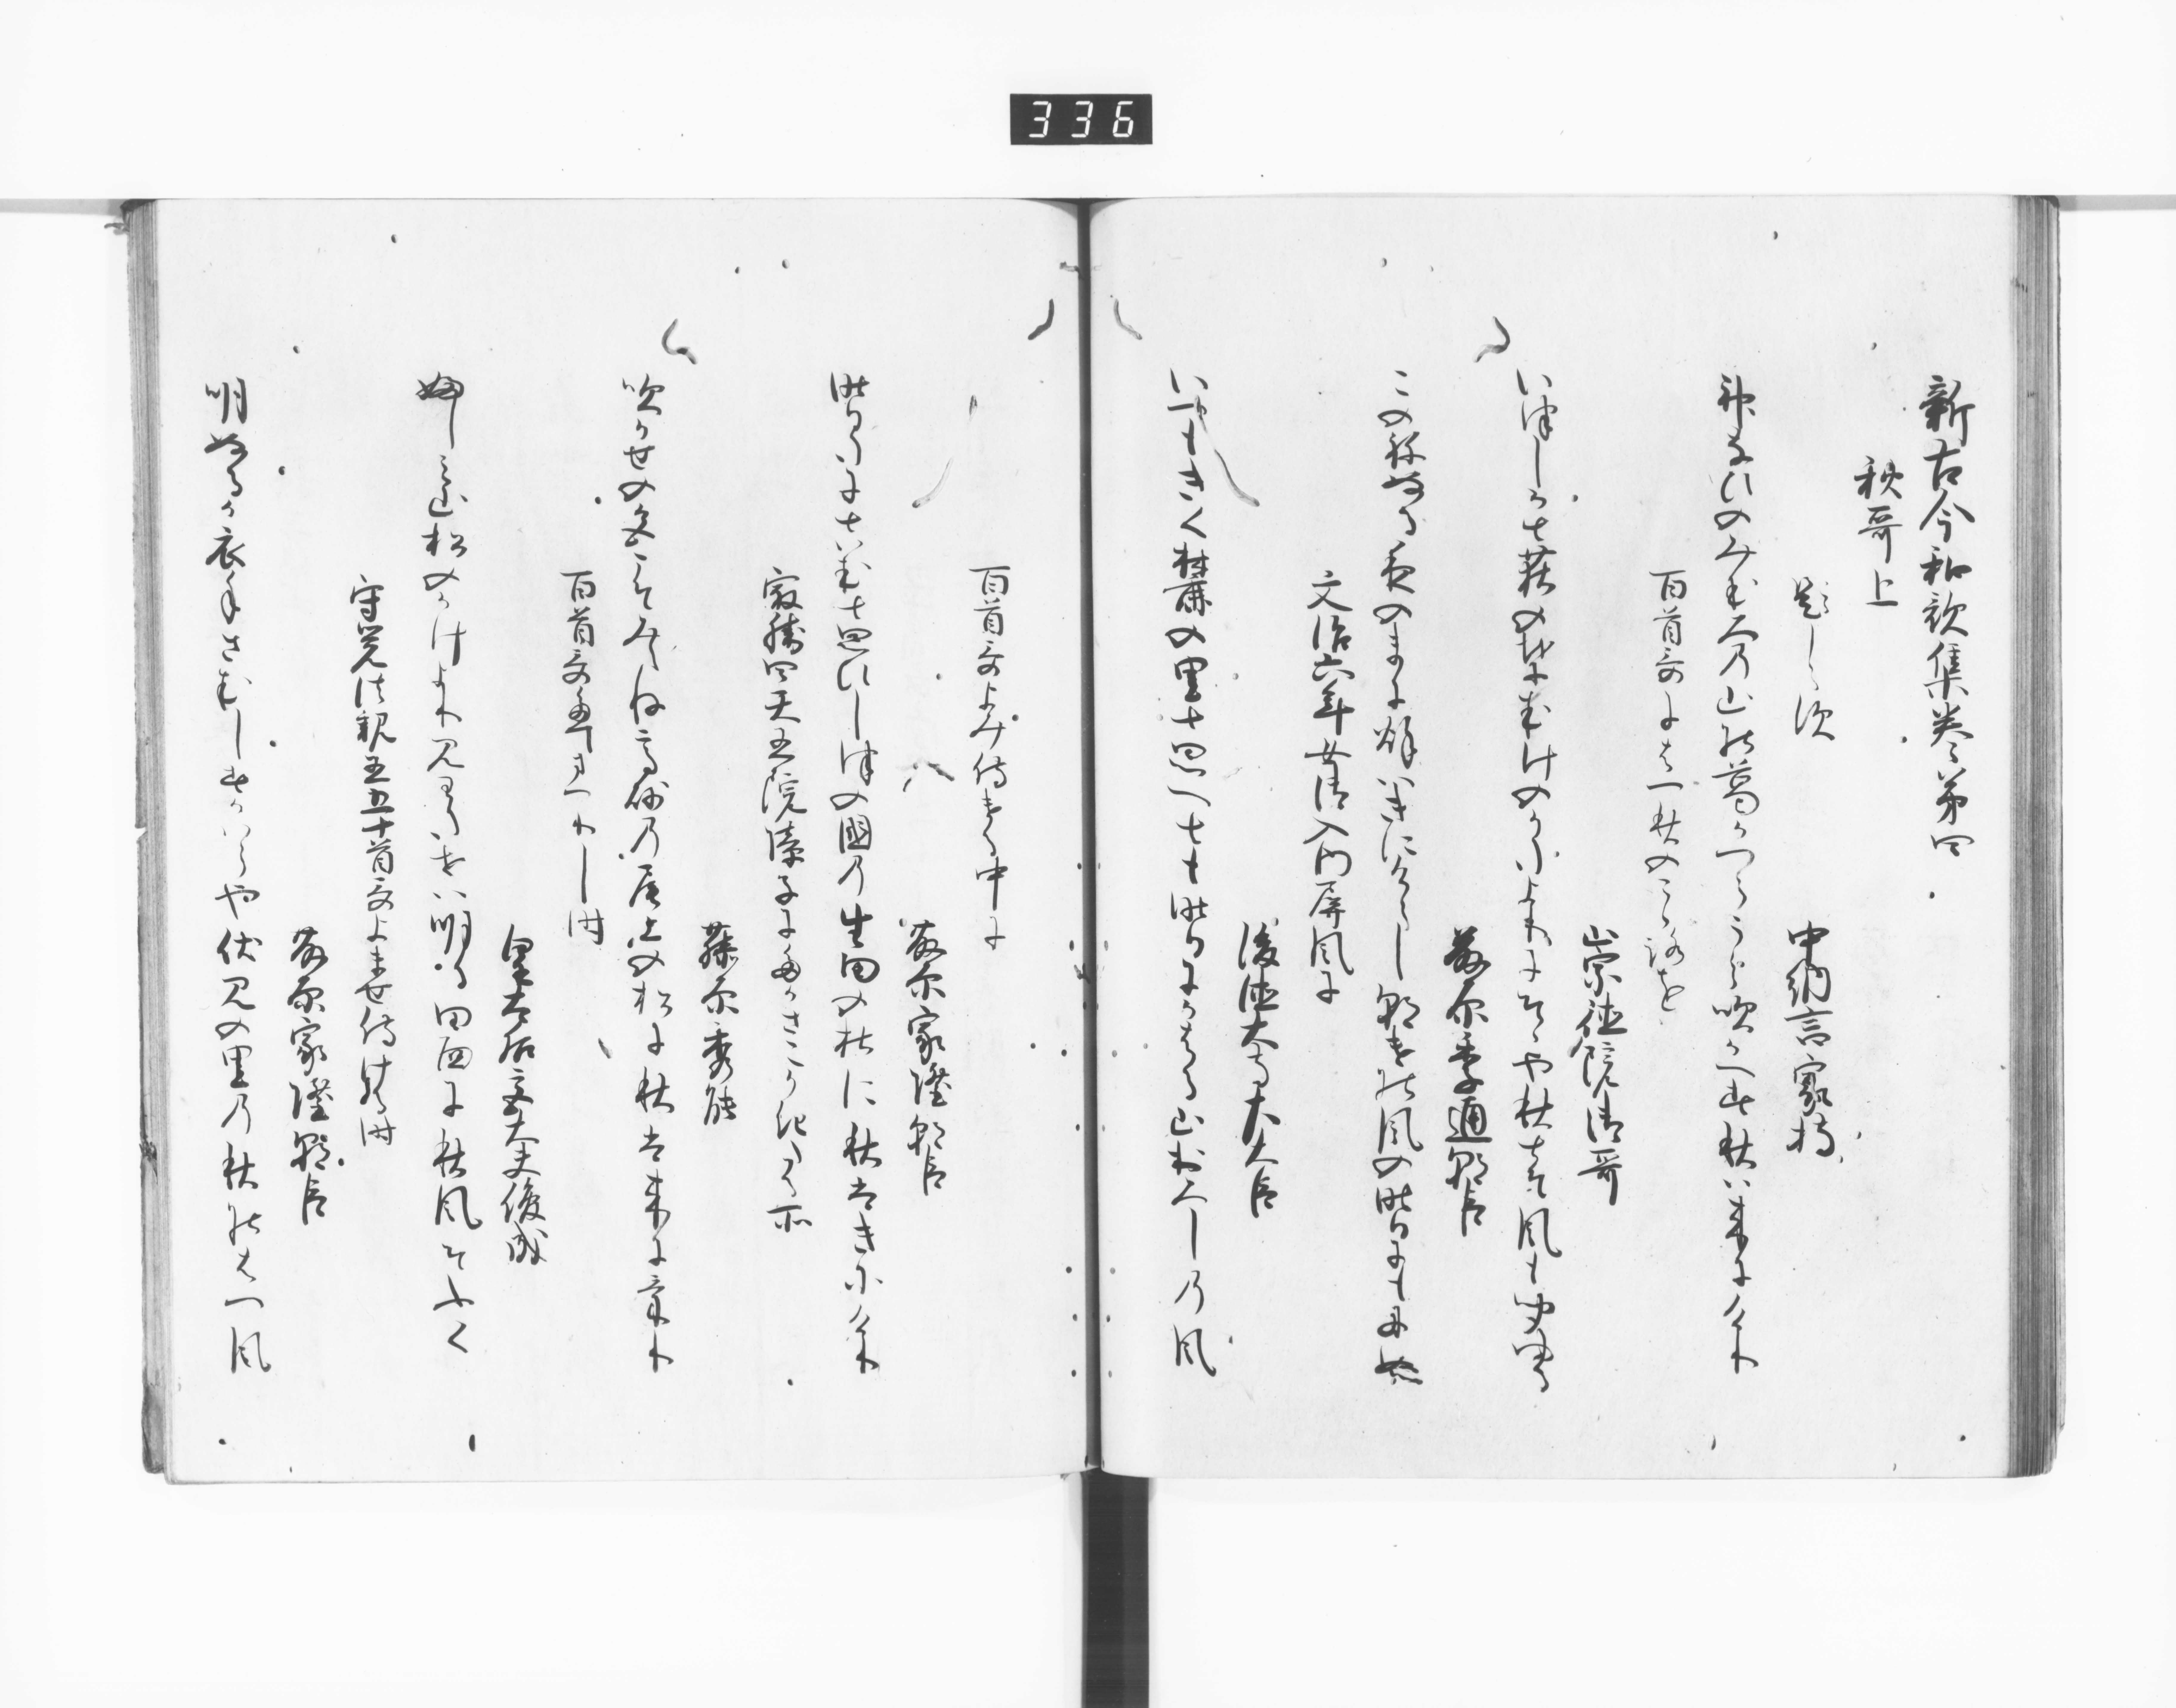 336
新古今和歌集巻第四
秋哥上
題しらす
中納言家持
神なひのみむろの山の葛かつらうら吹かへす秋は来にけり
百首哥にはつ秋のこゝろを
崇徳院御哥
いつしかと荻の葉むけのかたよりにそゝや秋とそ風も聞ゆる
藤原季通朝臣
この寝ぬる夜のまに秋はきにけらし朝けの風の昨日にも似ぬ
文治六年女御入内屏風に
後徳大寺左大臣
いつもきく麓の里と思へとも昨日にかはる山おろしの風
百首哥よみ侍ける中に
藤原家隆朝臣
昨日たにとはむと思ひし津の國の生田の杜に秋はきにけり
最勝四天王院障子にたかさこかきたる所
藤原秀能
吹かせの色こそみえね高砂の尾上の松に秋は来にけり
百首哥奉りし時
皇太后宮大夫俊成
ふしみ山松のかけより見わたせは明る田面に秋風そふく
守覚法親王五十首哥よませ侍ける時
藤原家隆朝臣
明ぬるか衣手さむしすかはらや伏見の里の秋のはつ風